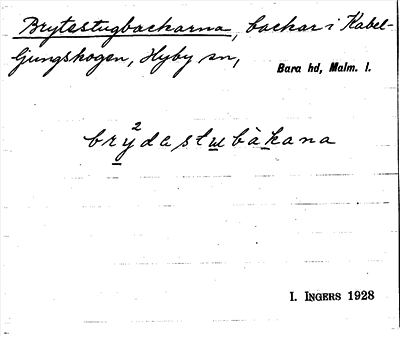 Brytestugbackarna, backar i Kabel-
ljungskogen, Hyby sn,
Bara hd, Malm. l.
brÿ²dastu̲bàk̲ana
I. INGERS 1928